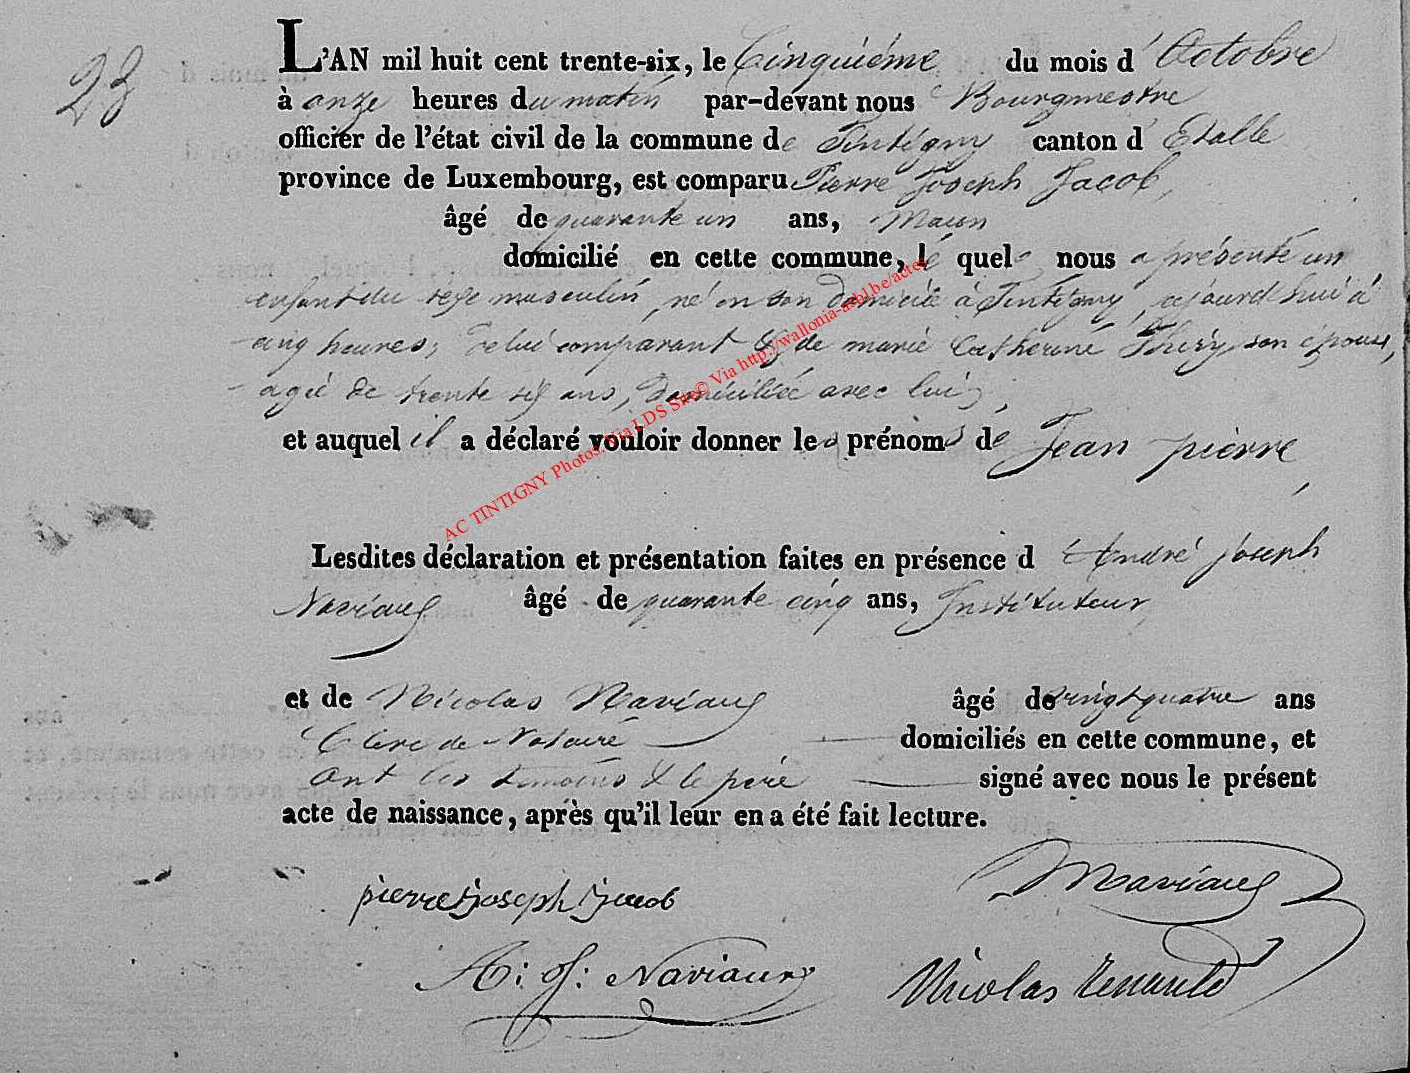 23
L'AN mil huit cent trente-six, le Cinquiéme du mois d'Octobre
à onze heures du matin par-devant nous Bourgmestre
officier de l'état civil de la commune de Tintigny canton d'Etalle
province de Luxembourg, est comparu Pierre Joseph Jacob,
âgé de quarante un ans, 
domicilié en cette commune, le quel nous a présenté un
enfant du sexe masculin, né en son domicile à Tintigny, ajourd'hui à
cinq heures, de lui comparant & de marie Catherine Thiry son épouse,
agée de trente six ans, domiciliée avec lui,
et auquel il a déclaré vouloir donner les prénoms de Jean pierre
Lesdites déclaration et présentation faites en présence d'André Joseph
Naviaux âgé de quarante cinq ans, Instituteur
et de Nicolas Naviaux âgé de vingt quatre ans
Clerc de Notaire domiciliés en cette commune, et
ont les temoins & le père signé avec nous le présent
acte de naissance, après qu'il leur en a été fait lecture.
pierre joseph jacob
Naviaux
A: J: Naviaux
Nicolas
AC TINTIGNY Photos. Via LDS Site© Via http://wallonia-asbl.be/actes